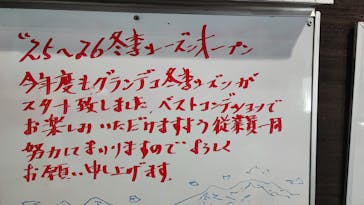 "25〜26冬季シーズンオープン
今年度もグランデコ冬季シーズンが
スタート致しました。ベストコンデションで
お楽しみいただけますよう従業員一同
努力してまいりますのでよろしく
お願い申し上げます。